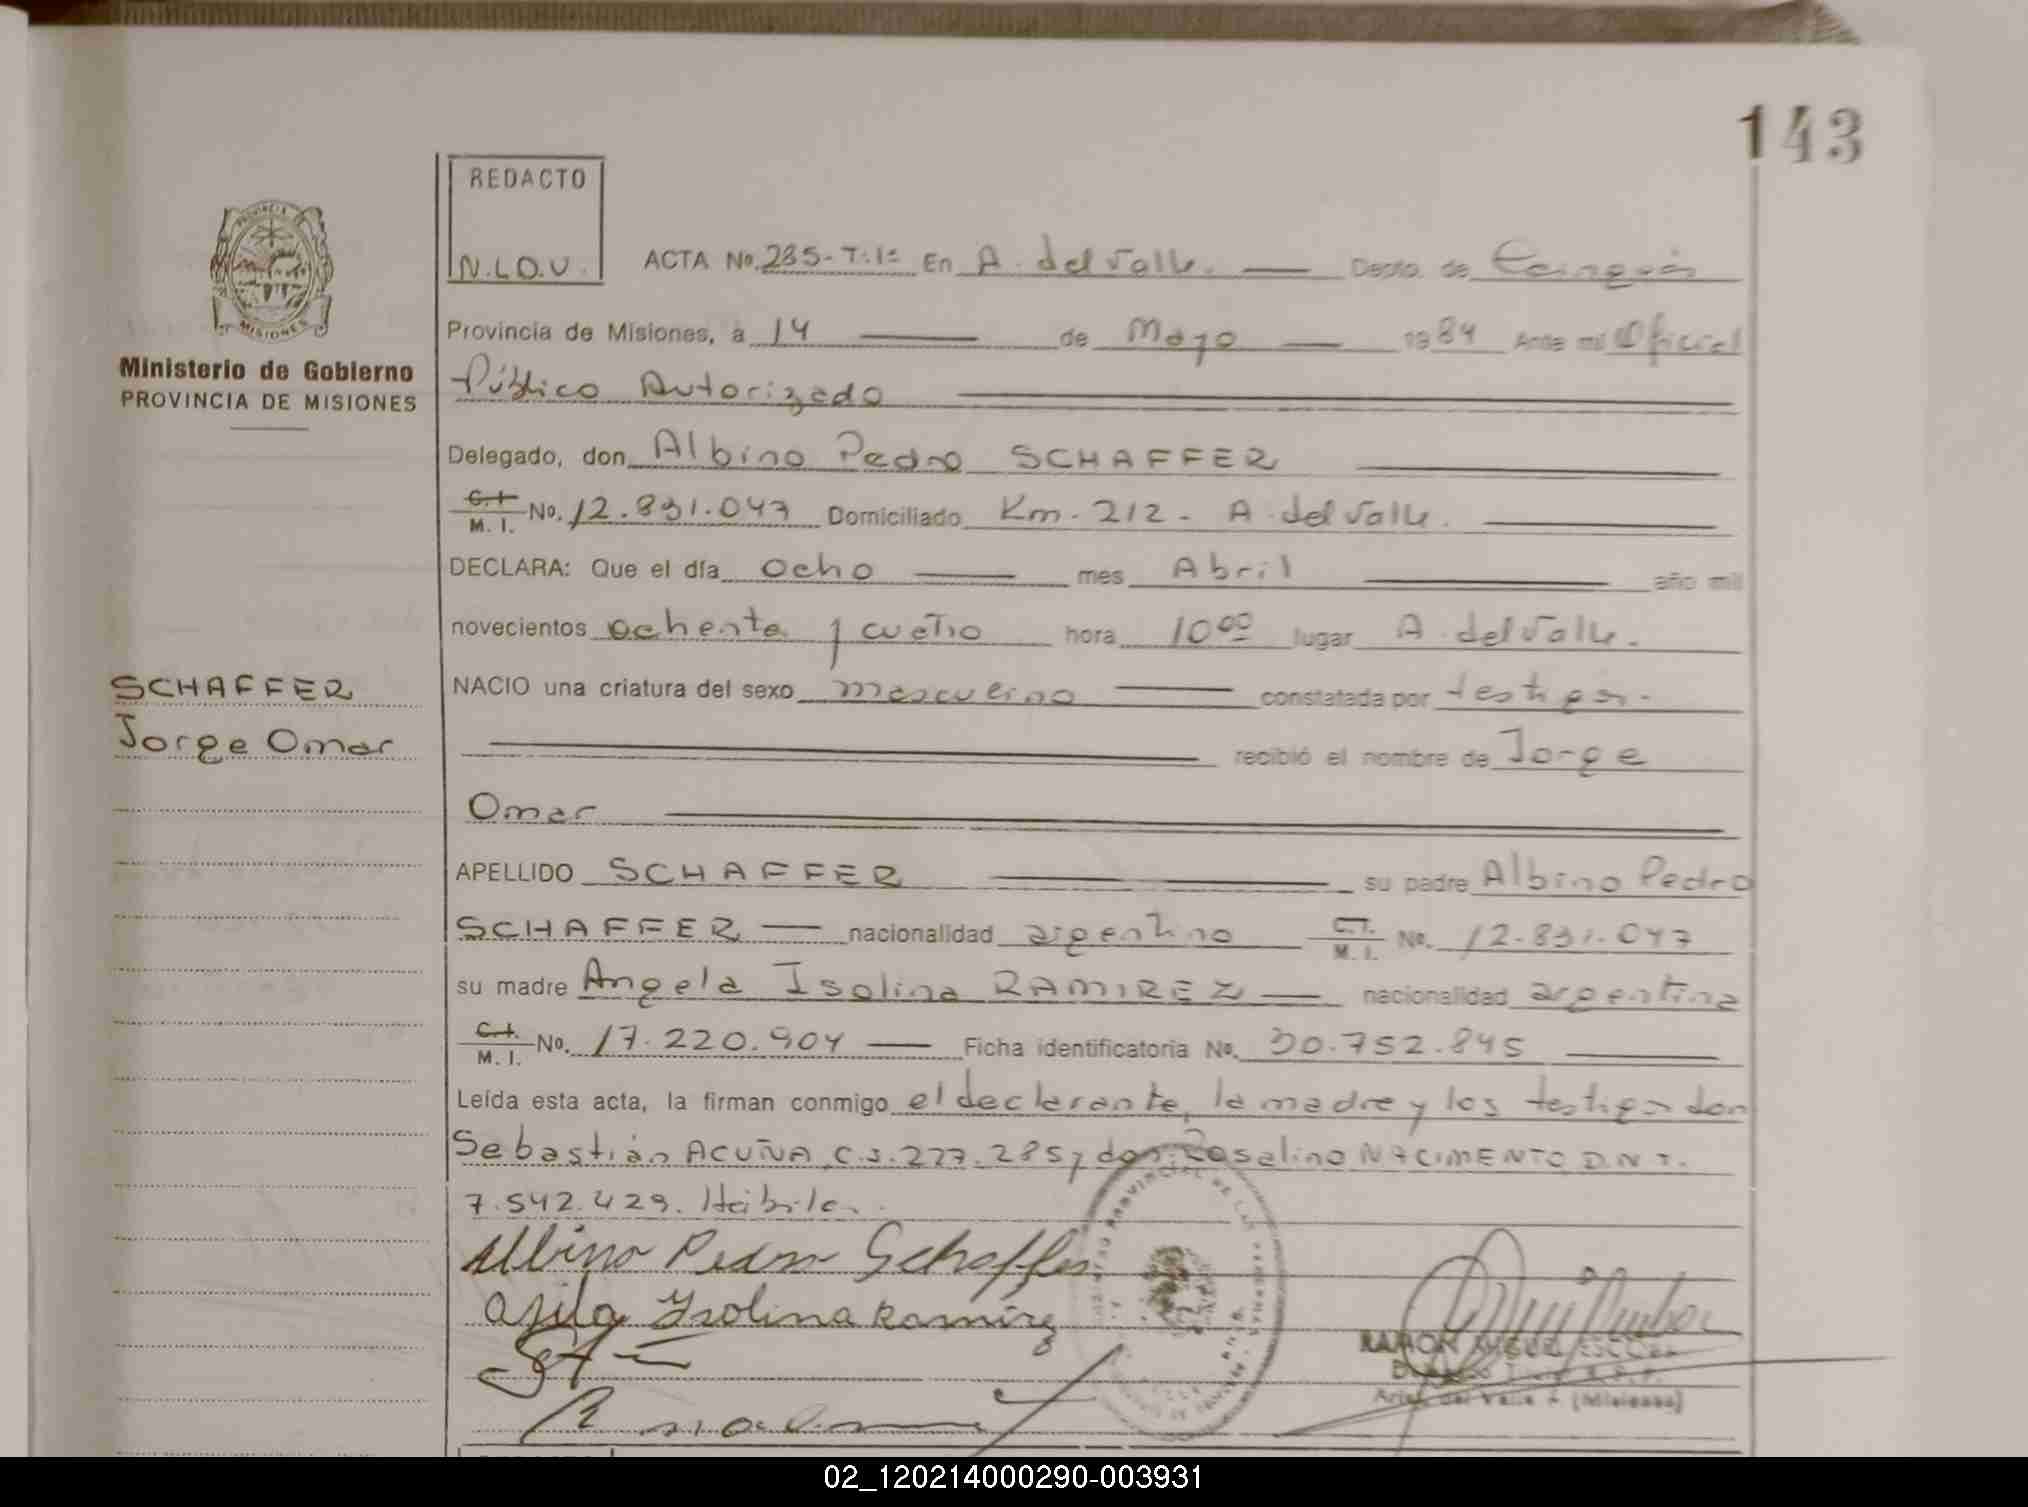 143
REDACTO
N.L.O.V.
ACTA No. 285-T:1º En A. del Valle. Depto. de Cainguás
Provincia de Misiones, a 14 de Mayo 1984 Ante mi Oficial
Público Autorizado
Ministerio de Gobierno
PROVINCIA DE MISIONES
MISIONES
Delegado, don Albino Pedro SCHAFFER
C.I. M. I. No. 12.891.047 Domiciliado Km. 212 - A. del Valle.
DECLARA: Que el día ocho mes Abril año mil
novecientos ochenta y cuatro hora 10 00 lugar A. del Valle.
SCHAFFER
Jorge Omar
NACIO una criatura del sexo masculino constatada por testigos.
recibió el nombre de Jorge
Omar
APELLIDO SCHAFFER su padre Albino Pedro
SCHAFFER nacionalidad argentino C.I. M. I. No. 12.891.047
su madre Angela Isolina RAMIREZ nacionalidad argentina
C.I. M. I. No. 17.220.904 Ficha identificatoria No. 30.752.845
Leída esta acta, la firman conmigo el declarante, la madre y los testigos don
Sebastián ACUÑA, C.I. 277.285 y don Rosalino NACIMENTO D.N.I.
7.542.429. Hábiles.
Albino Pedro Schaffer
Isolina Ramirez
RAMON MIGUEL
(Misiones)
02_120214000290-003931